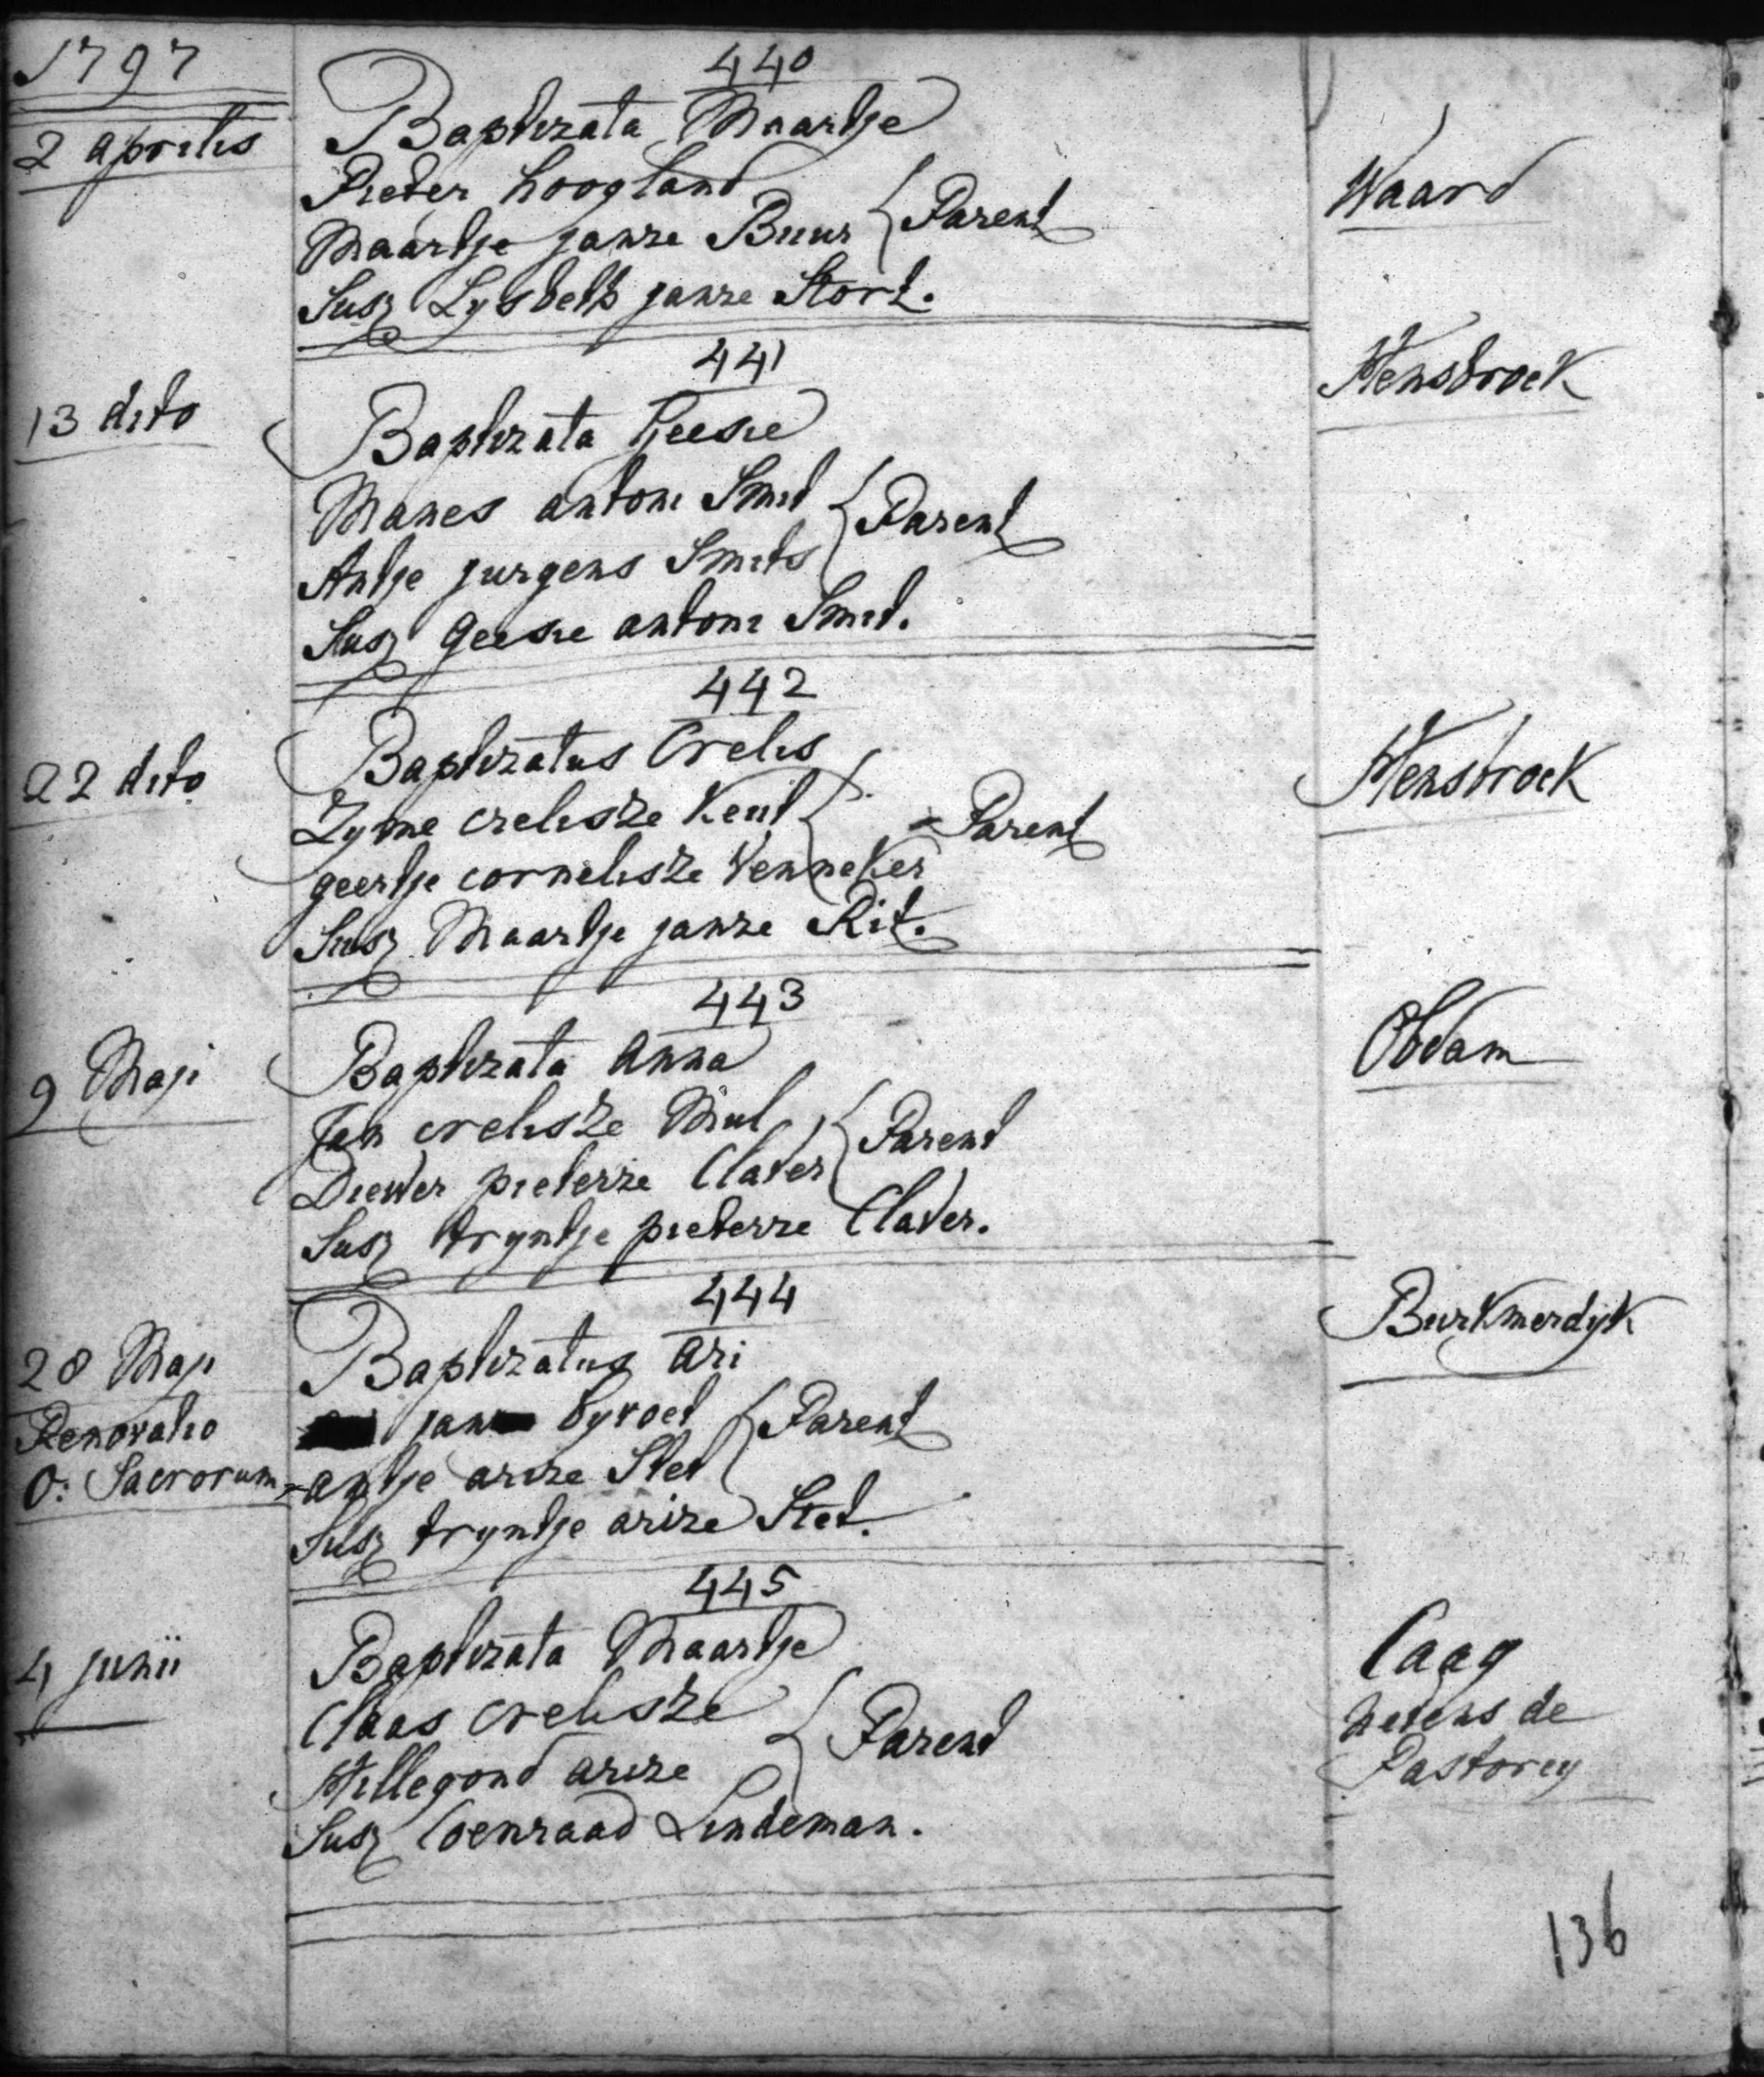 1797
440
2 aprilis
Baptizata Maartje
Pieter hoogland
Maartje janze Buur } Parent
Waard
Susz Lysbeth janze Stort.
441
13 dito
Hensbroek
Baptizata Geesie
Manes antoni Smit
Antje jurgens Smits } Parent
Susz Geesie antoni Smit.
442
22 dito
Hensbroek
Baptizatus Crelis
Zyme crelisze Keut
geertje cornelisze Venneker } Parent
Susz Maartje janze Rit.
443
9 Maji
Obdam
Baptizata Anna
Jan crelisze Mul
Diewer pieterze Claver } Parent
Susz tryntje pieterze Claver.
444
28 Maji
Renovatio
O: Sacrorum
Burkmerdijk
Baptizatus Ari
jan byvoet
antje arize Stet } Parent
Susz tryntje arize Stet.
445
4 junii
Baptizata Maartje
Claas crelisze
Hillegond arize } Parent
Susz Coenraad Lindeman.
Caag
netens de
Pastorey
136